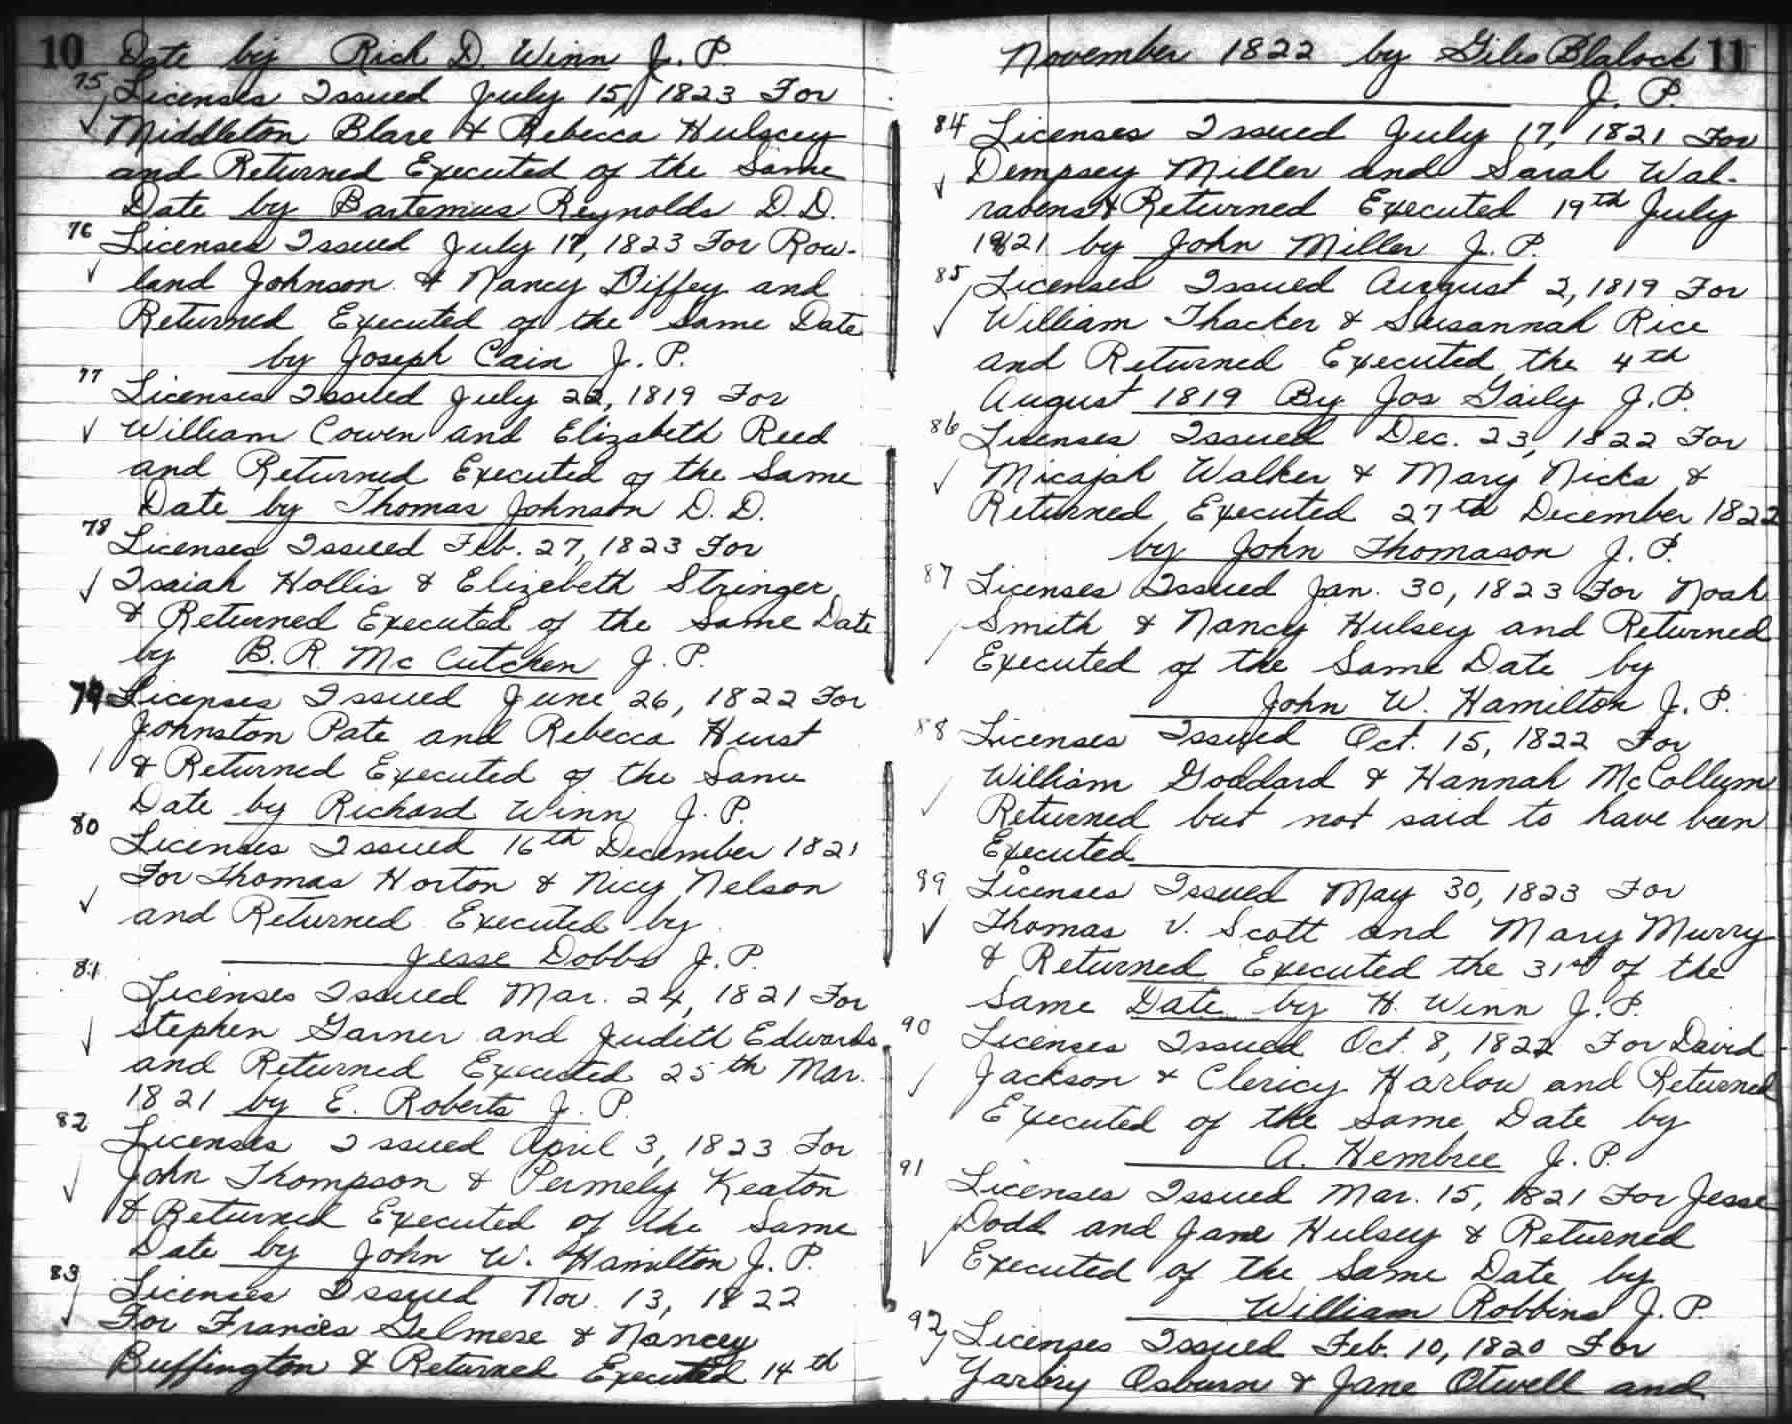 10 Date by Rich D. Winn J. P.
75 Licenses Issued July 15, 1823 For
Middleton Blare & Rebecca Hulscey
and Returned Executed of the Same
Date by Bartemus Reynolds D. D.
76 Licenses Issued July 17, 1823 For Row-
land Johnson & Nancy Diffey and
Returned Executed of the Same Date
by Joseph Cain J. P.
77 Licenses Issued July 22, 1819 For
William Cowen and Elizabeth Reed
and Returned Executed of the Same
Date by Thomas Johnson D. D.
78 Licenses Issued Feb. 27, 1823 For
Isaiah Hollis & Elizebeth Stringer
& Returned Executed of the Same Date
by B. R. McCutchen J. P.
79 Licenses Issued June 26, 1822 For
Johnston Pate and Rebecca Hurst
& Returned Executed of the Same
Date by Richard Winn J. P.
80 Licenses Issued 16th December 1821
For Thomas Horton & Nicy Nelson
and Returned Executed by
Jesse Dobbs J. P.
81 Licenses Issued Mar. 24, 1821 For
Stephen Garner and Judith Edwards
and Returned Executed 25th Mar.
1821 by E. Roberts J. P.
82 Licenses Issued April 3, 1823 For
John Thompson & Permely Keaton
& Returned Executed of the Same
Date by John W. Hamilton J. P.
83 Licenses Issued Nov. 13, 1822
For Francis Gelmere & Nancey
Buffington & Returned Executed 14th
November 1822 by Giles Blalock 11
J. P.
84 Licenses Issued July 17, 1821 For
Dempsey Miller and Sarah Wal-
ravens & Returned Executed 19th July
1821 by John Miller J. P.
85 Licenses Issued August 2, 1819 For
William Thacker & Susannah Rice
and Returned Executed the 4th
August 1819 By Jos Gaily J. P.
86 Licenses Issued Dec. 23, 1822 For
Micajah Walker & Mary Nicks &
Returned Executed 27th December 1822
by John Thomason J. P.
87 Licenses Issued Jan. 30, 1823 For Noah
Smith & Nancy Hulsey and Returned
Executed of the Same Date by
John W. Hamilton J. P.
88 Licenses Issued Oct. 15, 1822 For
William Goddard & Hannah McCollum
Returned but not said to have been
Executed
89 Licenses Issued May 30, 1823 For
Thomas V. Scott and Mary Murry
& Returned Executed the 31st of the
Same Date by H. Winn J. P.
90 Licenses Issued Oct. 8, 1822 For David
Jackson & Clericy Harlow and Returned
Executed of the Same Date by
A. Hembree J. P.
91 Licenses Issued Mar. 15, 1821 For Jesse
Dodd and Jane Hulsey & Returned
Executed of the Same Date by
William Robbins J. P.
92 Licenses Issued Feb. 10, 1820 For
Yarbry Osburn & Jane Otwell and